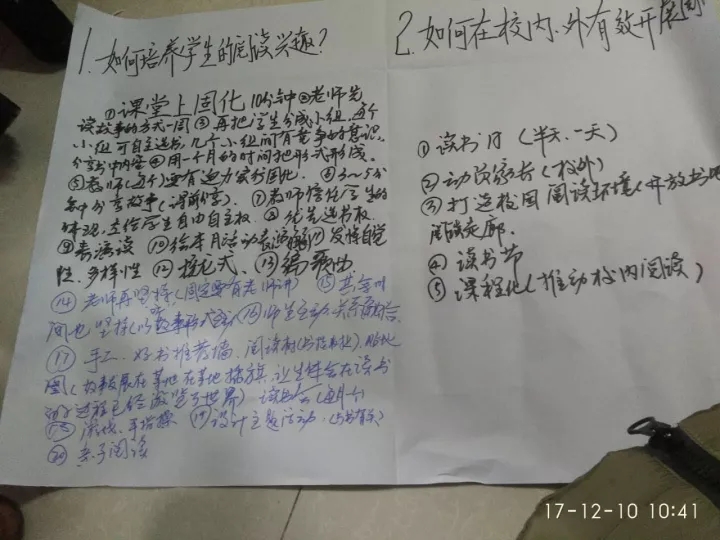 1. 如何培养学生的阅读兴趣?
①课堂上固化10分钟②老师先
读故事的方式一周③再把学生分成小组,每个
小组可自主选书,几个小组间有竞争的意识。
分享书中内容④用一个月的时间把形式形成。
⑤教师(每个)要有魄力实行固化。⑥3~5分
钟分享故事(课前分享)。⑦教师信任学生的
体现,去给学生自由自主权。⑧优先选书权
⑨表演读⑩给本月活动⑪发悟自觉
性、多样性⑫接龙式、⑬编歌曲
⑭老师再坚持(固定要有老师讲)⑮其余时
间也坚持(以故事形式⑯师生主动关系融洽
⑰手工、好书推荐墙、阅读树
图(故事发展在某地在某地插旗,让生体会在读书
的过程已经游览了世界)读书会(每月个
⑱游戏、手指操⑲设计主题活动.(与书有关)
⑳亲子阅读
2. 如何在校内、外有效开展阅
①读书月(半天、一天)
②动员家长(校外)
③打造校园阅读环境(开放书吧
阅读走廊.
④读书节
⑤课程化(推动校内阅读)
17-12-10 10:41